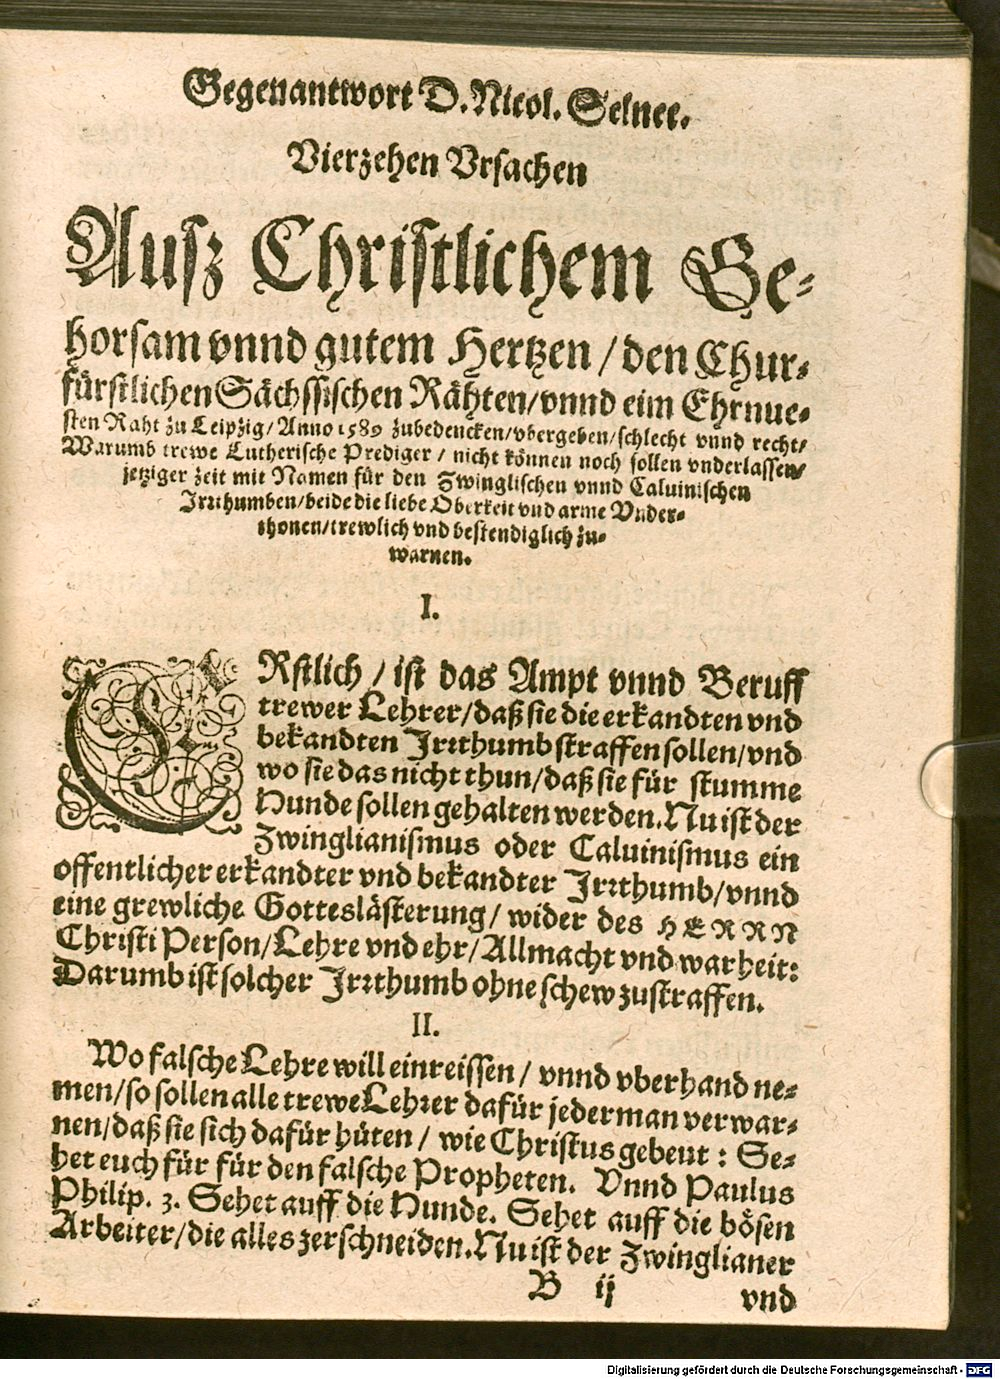 Gegenantwort D. Nicol. Selnec.
Vierzehen Vrsachen
Ausz Christlichem Ge-
horsam vnnd gutem Hertzen / den Chur-
fürstlichen Sächssischen Rähten / vnnd eim Ehrnue-
sten Raht zu Leipzig / Anno 1589 zubedencken / vbergeben / schlecht vnnd recht /
Warumb trewe Lutherische Prediger / nicht können noch sollen vnderlassen /
jetziger zeit mit Namen für den Zwinglischen vnnd Caluinischen
Irrthumben / beide die liebe Oberkeit vnd arme Vnder-
thonen / trewlich vnd bestendiglich zu-
warnen.
I.
ERstlich / ist das Ampt vnnd Beruff
trewer Lehrer / daß sie die erkandten vnd
bekandten Irrthumb straffen sollen / vnd
wo sie das nicht thun / daß sie für stumme
Hunde sollen gehalten werden. Nu ist der
Zwinglianismus oder Caluinismus ein
offentlicher erkandter vnd bekandter Irrthumb / vnnd
eine grewliche Gotteslästerung / wider des HERRN
Christi Person / Lehre vnd ehr / Allmacht vnd warheit:
Darumb ist solcher Irrthumb ohne schew zustraffen.
II.
Wo falsche Lehre will einreissen / vnnd vberhand ne-
men / so sollen alle trewe Lehrer dafür jederman verwar-
nen / daß sie sich dafür hüten / wie Christus gebeut : Se-
het euch für für den falsche Propheten. Vnnd Paulus
Philip. 3. Sehet auff die Hunde. Sehet auff die bösen
Arbeiter / die alles zerschneiden. Nu ist der Zwinglianer
B ij vnd
Digitalisierung gefördert durch die Deutsche Forschungsgemeinschaft - DFG